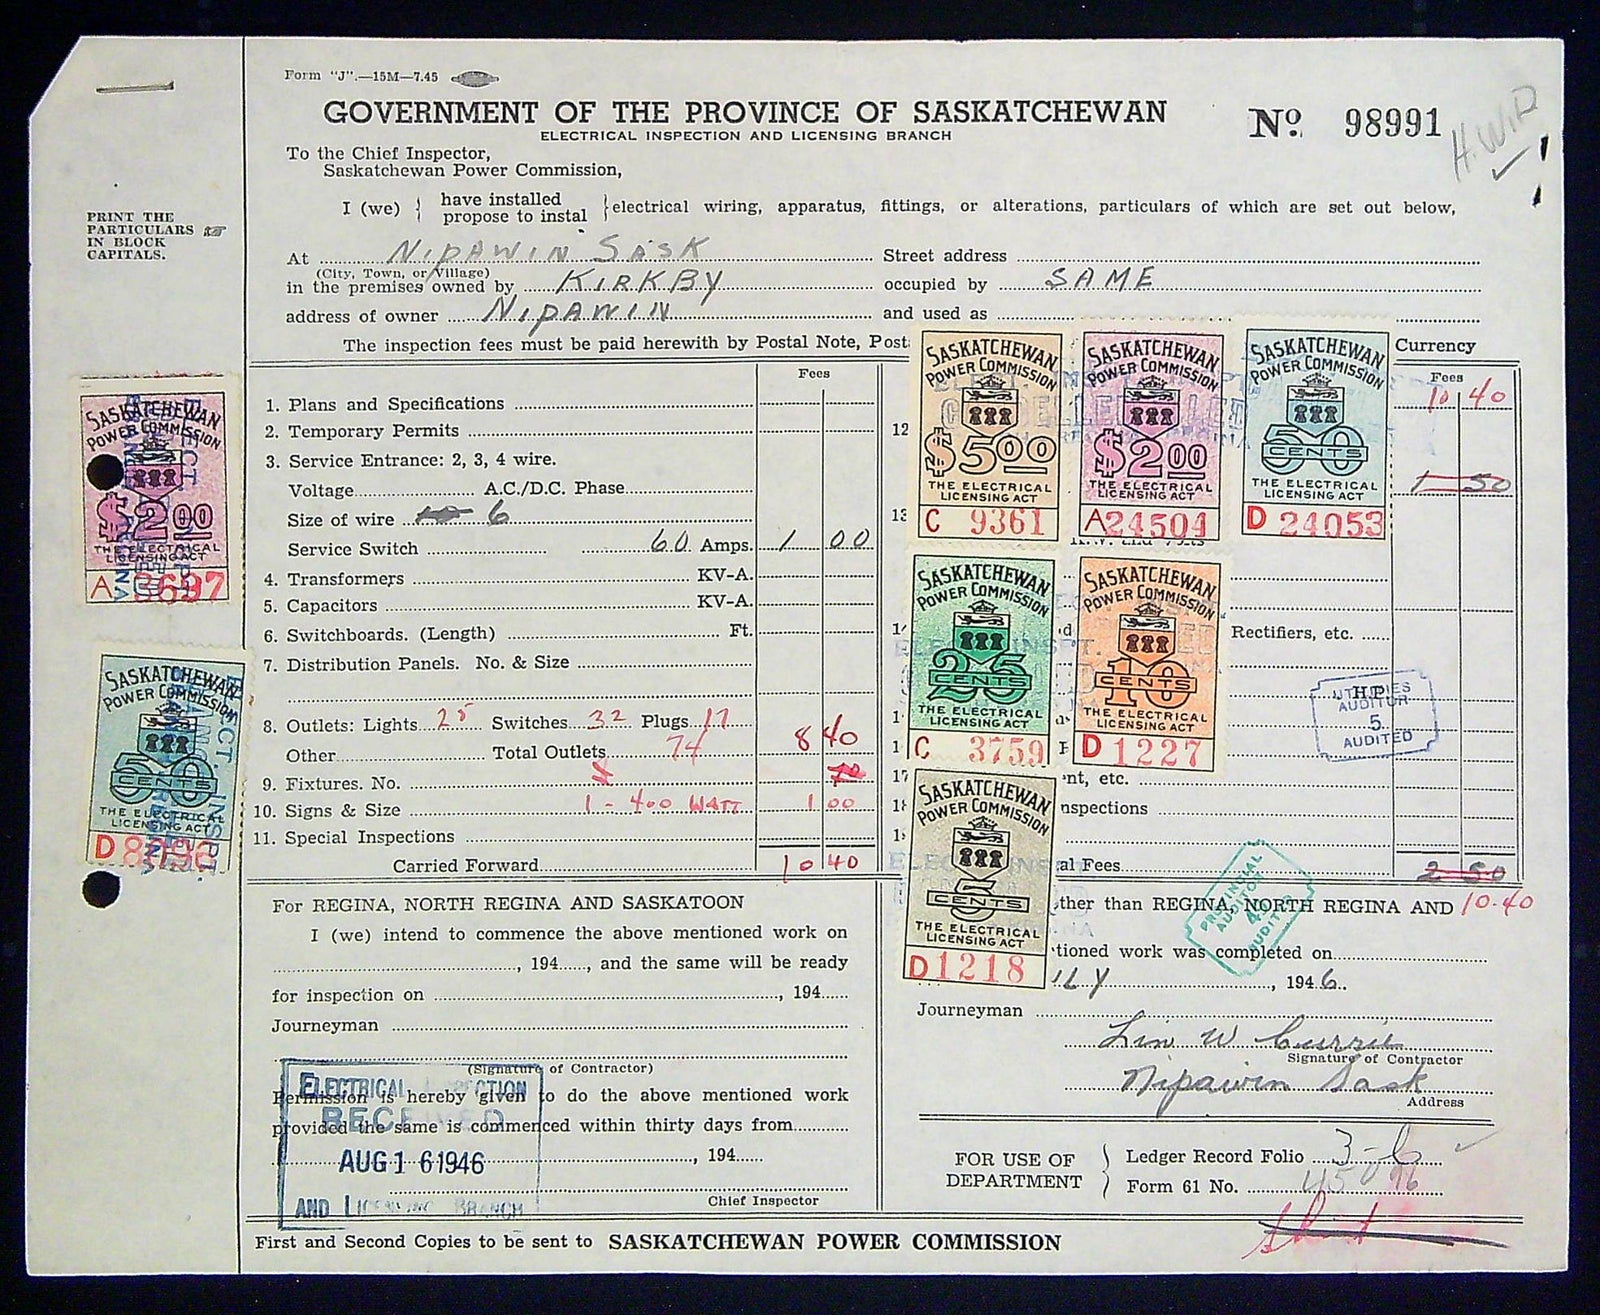 Form "J".—15M—7.45
GOVERNMENT OF THE PROVINCE OF SASKATCHEWAN
ELECTRICAL INSPECTION AND LICENSING BRANCH
No. 98991
H.W.D
To the Chief Inspector,
Saskatchewan Power Commission,
PRINT THE
PARTICULARS
IN BLOCK
CAPITALS.
I (we) { have installed
propose to instal } electrical wiring, apparatus, fittings, or alterations, particulars of which are set out below,
At NIPAWIN SASK Street address
(City, Town, or Village)
in the premises owned by KIRKBY occupied by SAME
address of owner NIPAWIN and used as
The inspection fees must be paid herewith by Postal Note, Post Currency
Fees
1. Plans and Specifications
2. Temporary Permits
3. Service Entrance: 2, 3, 4 wire.
Voltage A.C./D.C. Phase
Size of wire 6
Service Switch 60 Amps. 1 00
4. Transformers KV-A.
5. Capacitors KV-A.
6. Switchboards. (Length) Ft.
7. Distribution Panels. No. & Size
8. Outlets: Lights 25 Switches 32 Plugs 17
Other Total Outlets 74 8 40
9. Fixtures. No.
10. Signs & Size 1 - 400 WATT 1 00
11. Special Inspections
Carried Forward 10 40
Fees
10 40
1 50
12
13
H.P.
Rectifiers, etc.
nt, etc.
17
18
nspections
al Fees 2 50
10.40
SASKATCHEWAN
POWER COMMISSION
$5.00
THE ELECTRICAL
LICENSING ACT
C 9361
SASKATCHEWAN
POWER COMMISSION
$2.00
THE ELECTRICAL
LICENSING ACT
A24504
SASKATCHEWAN
POWER COMMISSION
50
CENTS
THE ELECTRICAL
LICENSING ACT
D 24053
SASKATCHEWAN
POWER COMMISSION
25
CENTS
THE ELECTRICAL
LICENSING ACT
C 3759
SASKATCHEWAN
POWER COMMISSION
10
CENTS
THE ELECTRICAL
LICENSING ACT
D 1227
SASKATCHEWAN
POWER COMMISSION
5
CENTS
THE ELECTRICAL
LICENSING ACT
D1218
SASKATCHEWAN
POWER COMMISSION
$2.00
THE ELECTRICAL
LICENSING ACT
A 3697
SASKATCHEWAN
POWER COMMISSION
50
CENTS
THE ELECTRICAL
LICENSING ACT
D8096
UTILITIES
AUDITOR
5
AUDITED
PROVINCIAL
AUDITOR
AUDITED
For REGINA, NORTH REGINA AND SASKATOON
I (we) intend to commence the above mentioned work on
, 194 , and the same will be ready
for inspection on , 194
Journeyman
(Signature of Contractor)
Permission is hereby given to do the above mentioned work
provided the same is commenced within thirty days from
, 194
Chief Inspector
ELECTRICAL INSPECTION
RECEIVED
AUG 16 1946
AND LICENSING BRANCH
ther than REGINA, NORTH REGINA AND
tioned work was completed on
LY , 1946
Journeyman
Lin W Currie
Signature of Contractor
Nipawin Sask
Address
FOR USE OF
DEPARTMENT
Ledger Record Folio 3-6
Form 61 No.
First and Second Copies to be sent to SASKATCHEWAN POWER COMMISSION